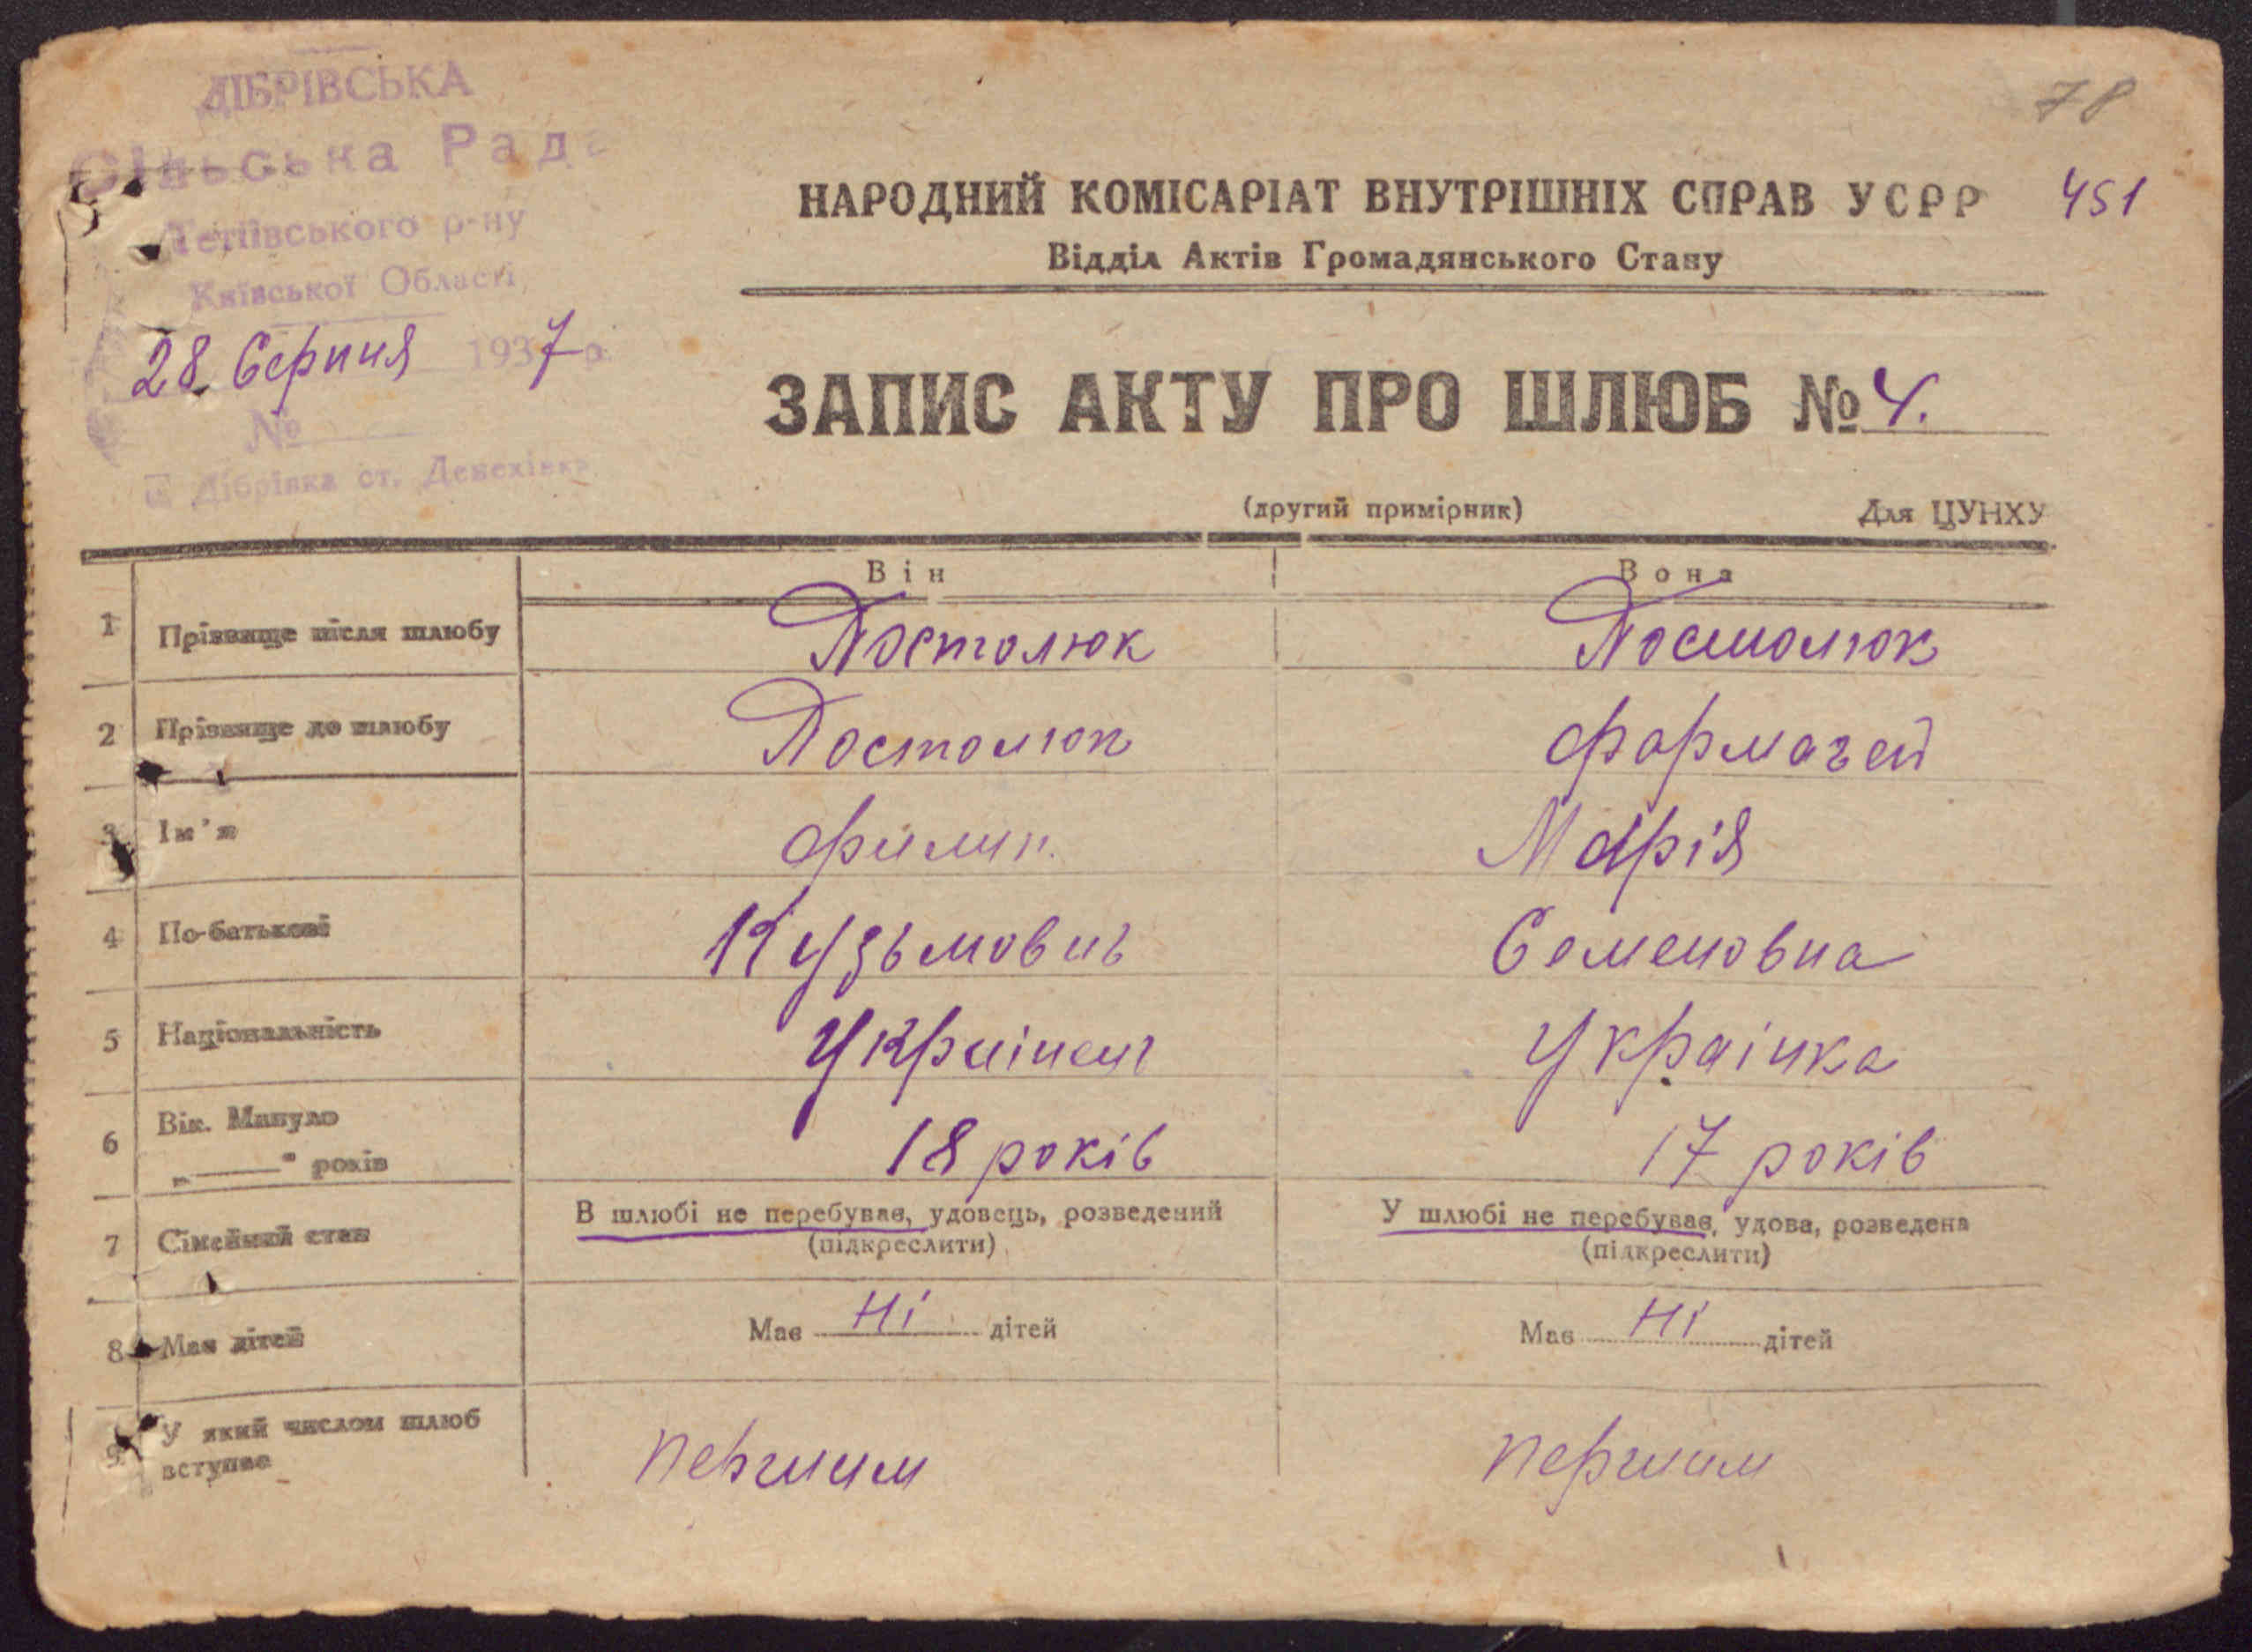 ДІБРІВСЬКА
Сільська Рада
Тетіївського р-ну
Київської Області
28 Серпня 1937 р.
№
Дібрівка ст.
78
НАРОДНИЙ КОМІСАРІАТ ВНУТРІШНІХ СПРАВ УСРР 451
Відділ Актів Громадянського Стану
ЗАПИС АКТУ ПРО ШЛЮБ № 4.
(другий примірник) Для ЦУНХУ
Він Вона
1 Прізвище після шлюбу Постолюк Постолюк
2 Прізвище до шлюбу Постолюк Формагей
3 Ім'я Филип. Марія
4 По-батькові Кузьмович Семеновна
5 Національність Українець Українка
6 Вік. Минуло
„ “ років 18 років 17 років
7 Сімейний стан В шлюбі не перебував, удовець, розведений У шлюбі не перебував, удова, розведена
(підкреслити) (підкреслити)
8 Має дітей Має Ні дітей Має Ні дітей
9 У який числом шлюб
вступає Першим Першим